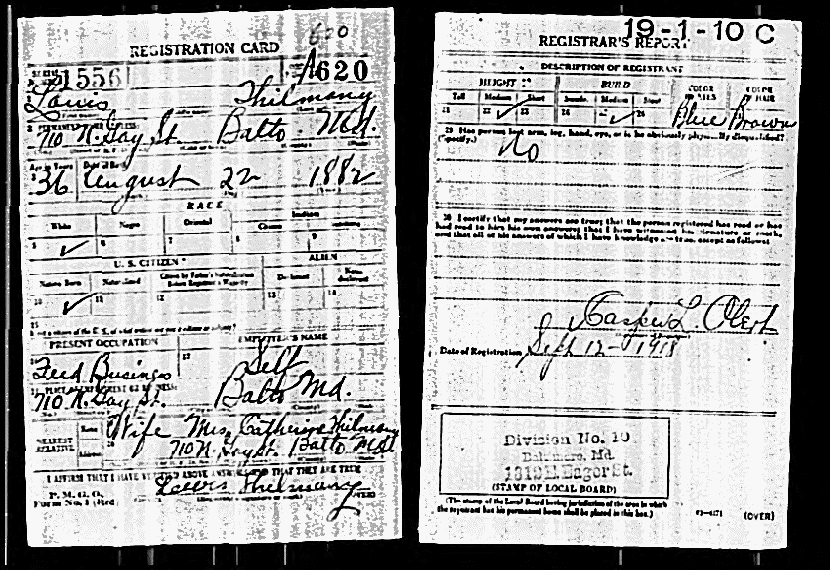 620
REGISTRATION CARD
1556
A620
Louis Thilmany
710 N. Gay St. Balto. Md.
Age in Years
Date of Birth
36 August 22 1882
RACE
White Negro Oriental Indian
5 6 7 8 9
U. S. CITIZEN ALIEN
Native Born Naturalized Declarant
10 11 12 13 14
15
PRESENT OCCUPATION EMPLOYER'S NAME
Feed Business Self
710 N. Gay St. Balto Md.
NEAREST RELATIVE
Name
Address
Wife Mrs. Catherine Thilmany
710 N. Gay St. Balto Md
I AFFIRM THAT I HAVE VERIFIED ABOVE ANSWERS AND THAT THEY ARE TRUE
P. M. G. O.
Form No. 1 (Red)
Louis Thilmany
19-1-10 C
REGISTRAR'S REPORT
DESCRIPTION OF REGISTRANT
HEIGHT BUILD COLOR OF EYES COLOR OF HAIR
Tall Medium Short Slender Medium Stout
21 22 23 24 26
Blue Brown
29 Has person lost arm, leg, hand, eye, or is he obviously physically disqualified?
(Specify.)
No
30 I certify that my answers are true; that the person registered has read or has
had read to him his own answers; that I have witnessed his signature or mark,
and that all of his answers of which I have knowledge are true, except as follows:
Casper L. Olert
Date of Registration Sept 12-1918
Division No. 10
Baltimore, Md.
1619 E. Eager St.
(STAMP OF LOCAL BOARD)
(The stamp of the Local Board having jurisdiction of the area in which
the registrant has his permanent home shall be placed in this box.)
(OVER)